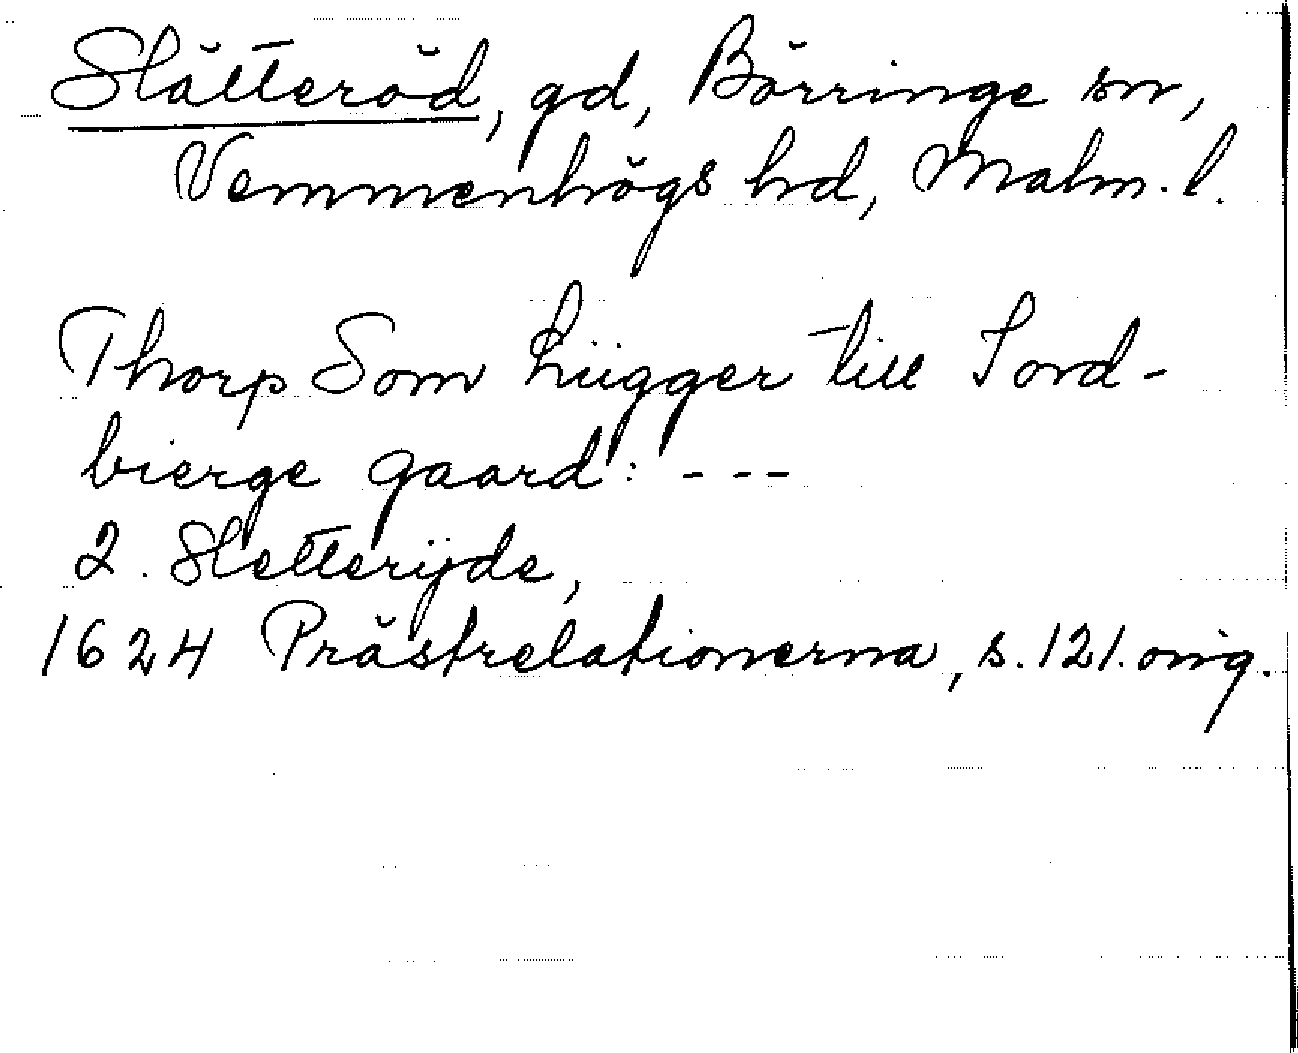 Slätteröd, gd, Börringe sn,
Vemmenhögs hd, Malm. l.
Thorp Som liigger till Jord-
bierge gaard: ---
2. Sletterÿde,
1624 Prästrelationerna, s. 121. orig.